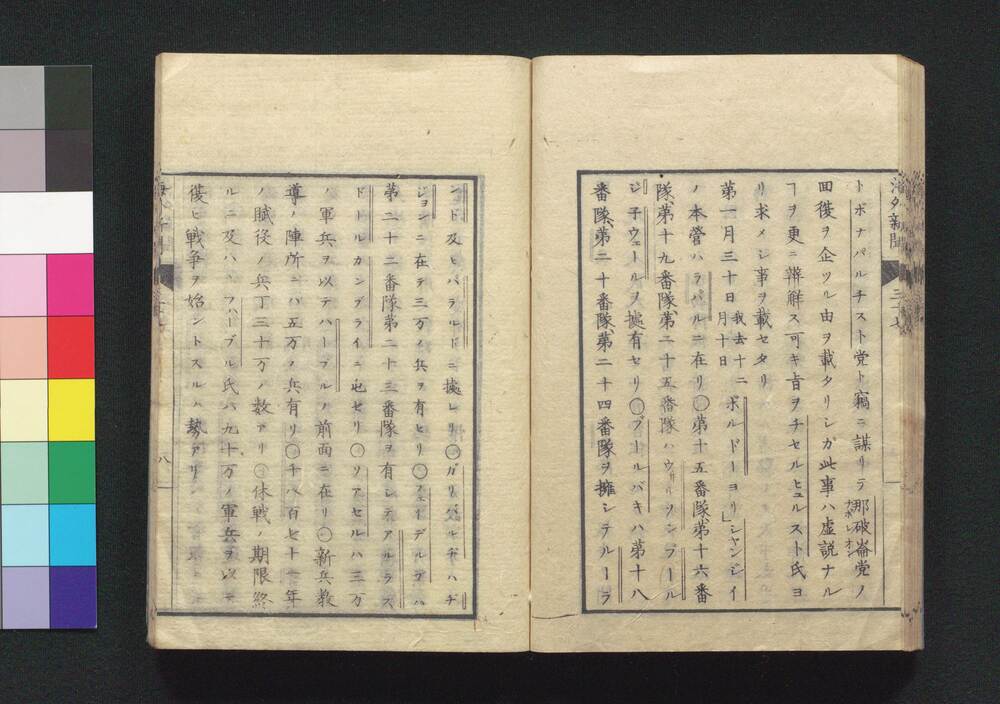 海外新聞 三十七
トボナパルチスト党ト竊ニ謀リテ那破崙党ノ
ナポレオン
回復ヲ企ツル由ヲ載タリシガ此事ハ虚説ナル
ヿヲ更ニ辨解ス可キ旨ヲチセルヒュルスト氏ヨ
リ求メシ事ヲ載セタリ
第一月三十日 我去十二月十日 ボルドーヨリ」シャンジイ
ノ本營ハラバルニ在リ○第十五番隊第十六番
隊第十九番隊第二十五番隊ハウィルソンプールル
ジ子ウェートルヲ據有セリ○ブールバキハ第十八
番隊第二十番隊第二十四番隊ヲ擁シテルーラ
ンド及ヒバラルドニ據レリ○ガリバルヂハヂ
ジョンニ在テ三万ノ兵ヲ有セリ○フェーデルブハ
第二十二番隊第二十三番隊ヲ有シテアルラス
ドールカンブライニ屯セリ○ソアセルハ三万
ノ軍兵ヲ以テハーブルノ前面ニ在リ○新兵教
導ノ陣所ニハ五万ノ兵有リ○千八百七十一年
ノ賦役ノ兵丁三十万ノ数アリ○休戦ノ期限終
ルニ及ハヽファーブル氏ハ九十万ノ軍兵ヲ以テ
復ヒ戦争ヲ始ントスルハ勢アリ
八